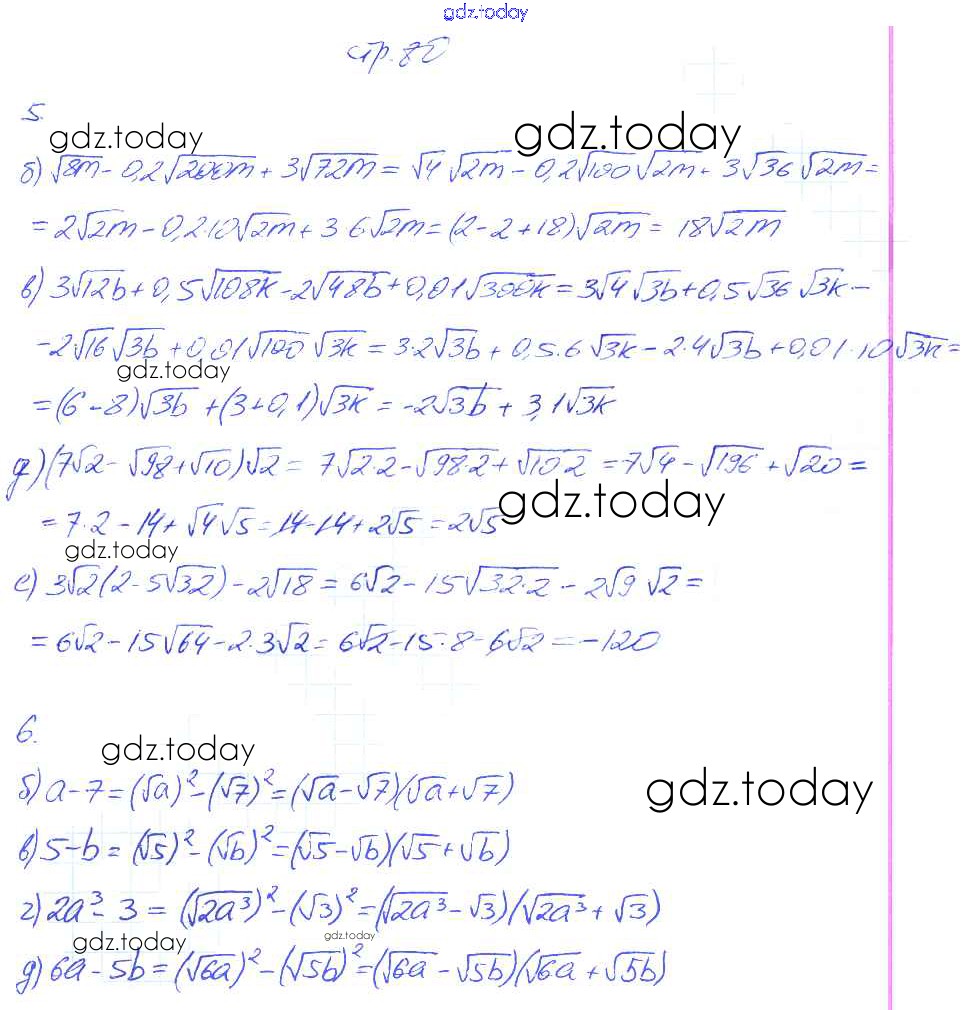 gdz.today
стр. 80
5.
gdz.today gdz.today
б) √8m - 0,2√200m + 3√72m = √4 √2m - 0,2√100 √2m + 3√36 √2m =
= 2√2m - 0,2·10√2m + 3 6√2m = (2-2+18)√2m = 18√2m
в) 3√12b + 0,5√108k - 2√48b + 0,01√300k = 3√4 √3b + 0,5√36 √3k -
-2√16 √3b + 0,01√100 √3k = 3·2√3b + 0,5·6√3k - 2·4√3b + 0,01·10√3k =
gdz.today
= (6-8)√3b + (3+0,1)√3k = -2√3b + 3,1√3k
д) (7√2 - √98 + √10)√2 = 7√2·2 - √98·2 + √10·2 = 7√4 - √196 + √20 =
gdz.today
= 7·2 - 14 + √4 √5 = 14-14+2√5 = 2√5
gdz.today
е) 3√2(2-5√32) - 2√18 = 6√2 - 15√32·2 - 2√9 √2 =
= 6√2 - 15√64 - 2·3√2 = 6√2 - 15·8 - 6√2 = -120
6.
gdz.today
б) a - 7 = (√a)² - (√7)² = (√a - √7)(√a + √7)
gdz.today
в) 5 - b = (√5)² - (√b)² = (√5 - √b)(√5 + √b)
г) 2a³ - 3 = (√2a³)² - (√3)² = (√2a³ - √3)(√2a³ + √3)
gdz.today gdz.today
д) 6a - 5b = (√6a)² - (√5b)² = (√6a - √5b)(√6a + √5b)